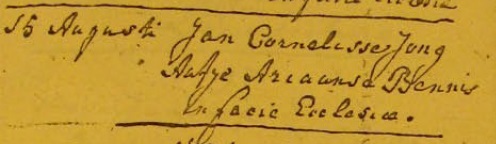 15 Augusti Jan Cornelisse Jong
Aafje Ariaanse Bennis
in facie Ecclesiæ.